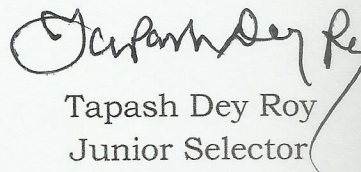 Tapash Dey Roy
Tapash Dey Roy
Junior Selector